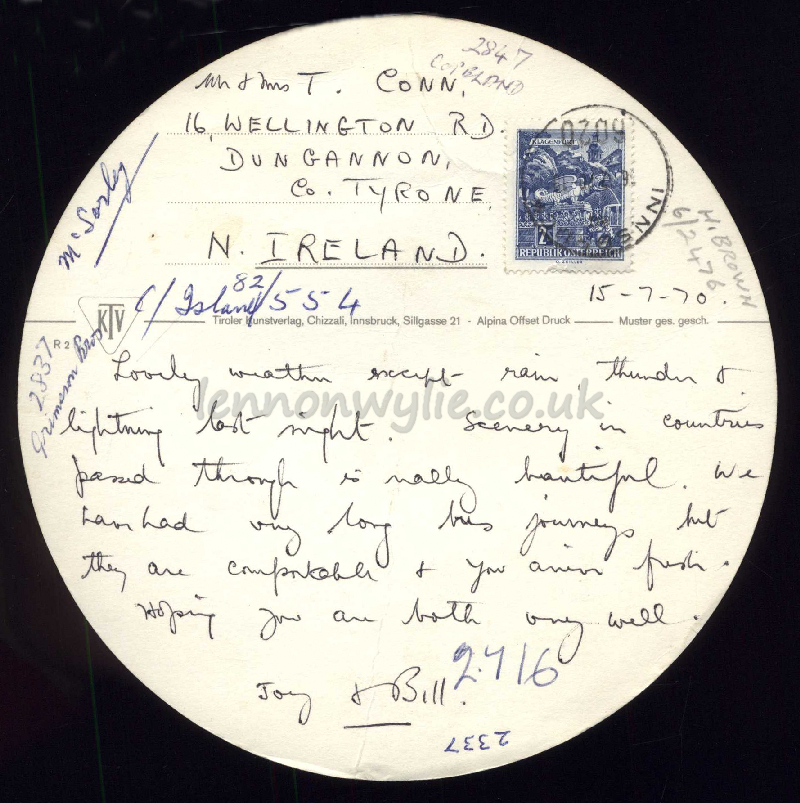 2847
COPELAND
Mr & Mrs T. CONN,
16, WELLINGTON RD.
DUNGANNON,
Co. TYRONE,
N. IRELAND.
KLAGENFURT
2S
REPUBLIK ÖSTERREICH
6020
INNSB
McSorley
H. BROWN
6/2476
15-7-70.
C/Island 82/554
KTV
Tiroler Kunstverlag, Chizzali, Innsbruck, Sillgasse 21 - Alpina Offset Druck
Muster ges. gesch.
R 2
2837
Grimeson Bros
Lovely weather except rain thunder &
lightning last night. Scenery in countries
passed through is really beautiful. We
have had very long bus journeys but
they are comfortable & you arrive fresh.
Hoping you are both very well.
Joy & Bill.
2716
2337
lennonwylie.co.uk